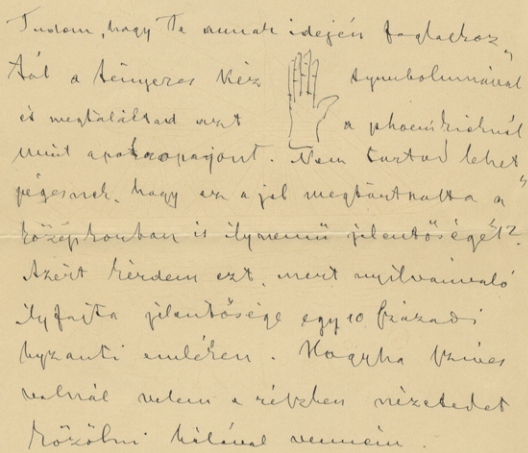 Tudom, hogy Te annak idején foglalkoz„
tál a tényeres kéz symbolumával
és megtaláltad azt a phoenikiaknál
mint apotropajont. Nem tartod lehet„
ségesnek, hogy ez a jel megtartotta a
középkorban is ilynemű jelentőségét?
Azért kérdem ezt, mert nyilvánvaló
ilyfajta jelentősége egy 10 századi
byzanti emléken. Hogyha szíves
volnál velem a részben nézetedet
közölni hálával venném.